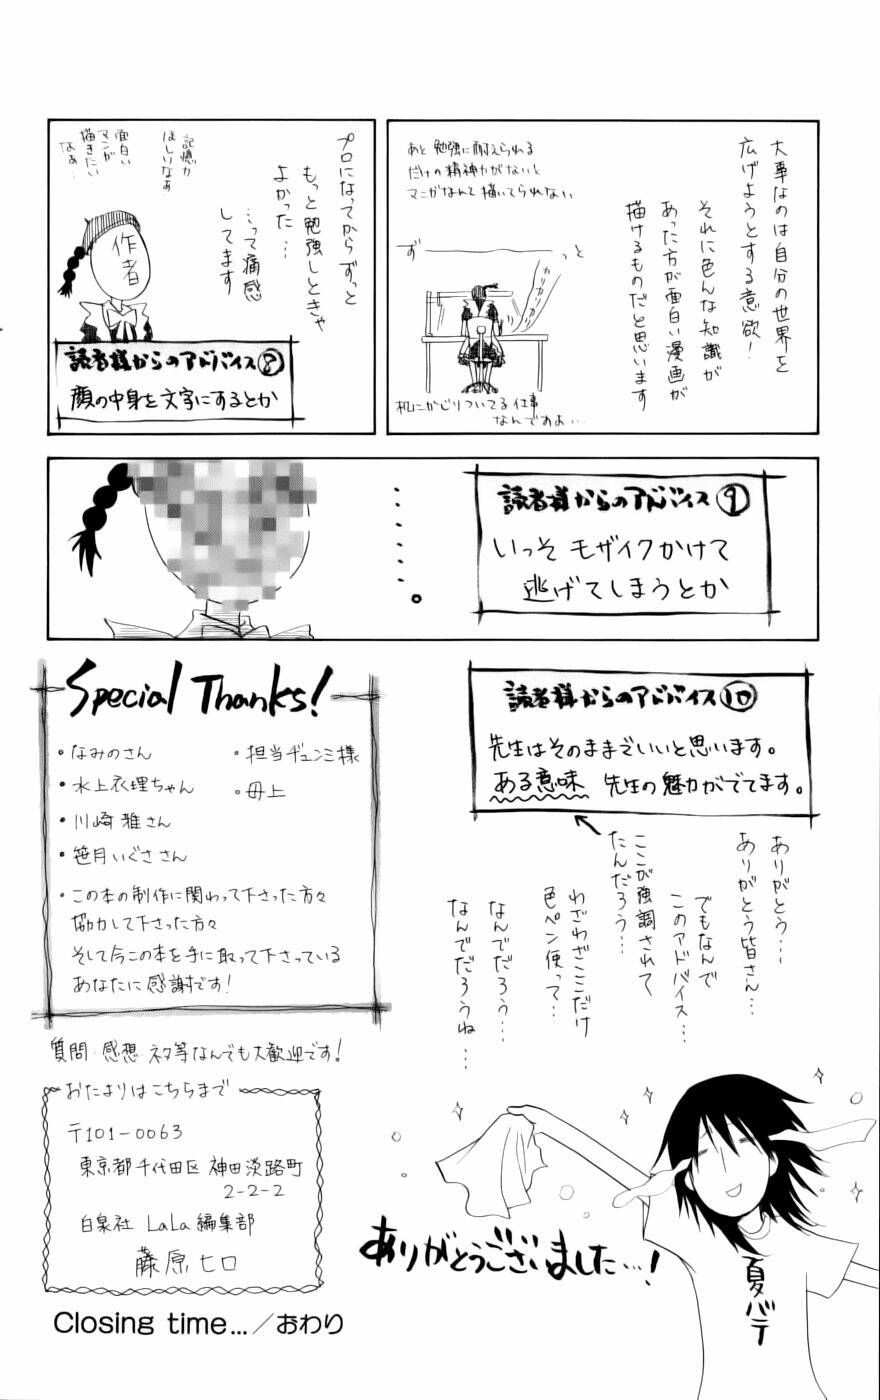 大事なのは自分の世界を
広げようとする意欲!
それに色んな知識が
あった方が面白い漫画が
描けるものだと思います
あと勉強に耐えられる
だけの精神力がないと
マンガなんて描いてられない
ず
っと
カリカリカリカリ
机にかじりついてる仕事
なんですよ…
プロになってからずっと
もっと勉強しときゃ
よかった…
…って痛感
してます
記憶力
ほしいなぁ
面白い
マンガ
描きたい
なぁ…
作者
読者様からのアドバイス⑧
顔の中身を文字にするとか
......。
読者様からのアドバイス⑨
いっそモザイクかけて
逃げてしまうとか
読者様からのアドバイス⑩
先生はそのままでいいと思います。
ある意味 先生の魅力がでてます。
ありがとう…
ありがとう皆さん…
でもなんで
このアドバイス…
ここが強調されて
たんだろう…
わざわざここだけ
色ペン使って…
なんでだろう…
なんでだろうね…
Special Thanks!
・なみのさん
・水上衣理ちゃん
・川崎雅さん
・笹月いぐささん
・担当ヂュンミ様
・母上
・この本の制作に関わって下さった方々
協力して下さった方々
そして今この本を手に取って下さっている
あなたに感謝です!
質問・感想・ネタ等なんでも大歓迎です!
おたよりはこちらまで
〒101-0063
東京都千代田区神田淡路町
2-2-2
白泉社 LaLa編集部
藤原ヒロ
ありがとうございました…!
夏バテ
Closing time…／おわり